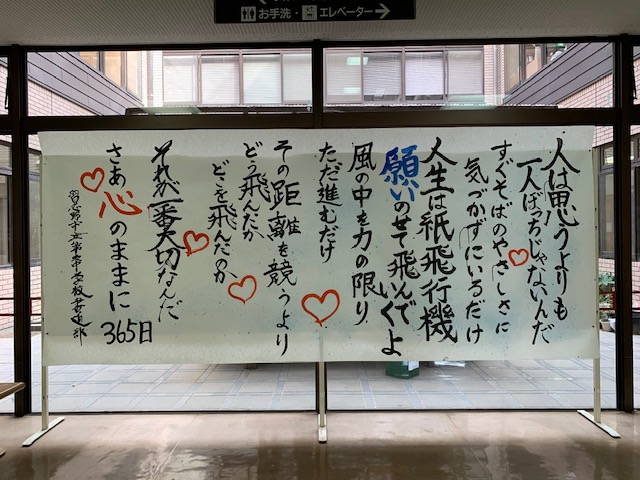 お手洗・エレベーター→
人は思うよりも
一人ぼっちじゃないんだ
すぐそばのやさしさに
気づかずにいるだけ
人生は紙飛行機
願いのせて飛んで
いくよ
風の中を力の限り
ただ進むだけ
その距離を競うより
どう飛んだか
どこを飛んだのか
それが一番大切なんだ
さあ心のままに
365日
習志野市立第一中学校書道部